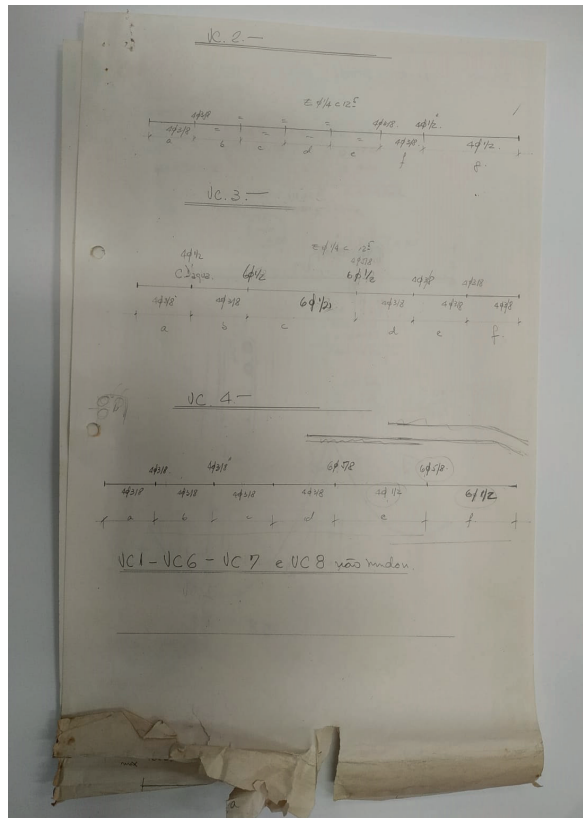 VC. 2.—
E φ 1/4 c 12c
4φ3/8 = = = = 4φ3/8. 4φ1/2"
4φ3/8 = = = = 4φ3/8 4φ1/2.
a b c d e f g.
VC. 3.—
4φ1/2 E φ 1/4 c 12c
C. D'agua. 6φ1/2 6φ1/2 4φ3/8
4φ3/8" 4φ3/8 6φ1/2 4φ3/8 4φ3/8 4φ3/8
a b c d e f.
VC 4—
4φ3/8 4φ3/8" 6φ5/8
4φ3/8 4φ3/8 4φ3/8 4φ3/8 4φ1/2 6φ1/2
a b c d e f
VC1 – VC6 – VC7 e VC8 não mudou.